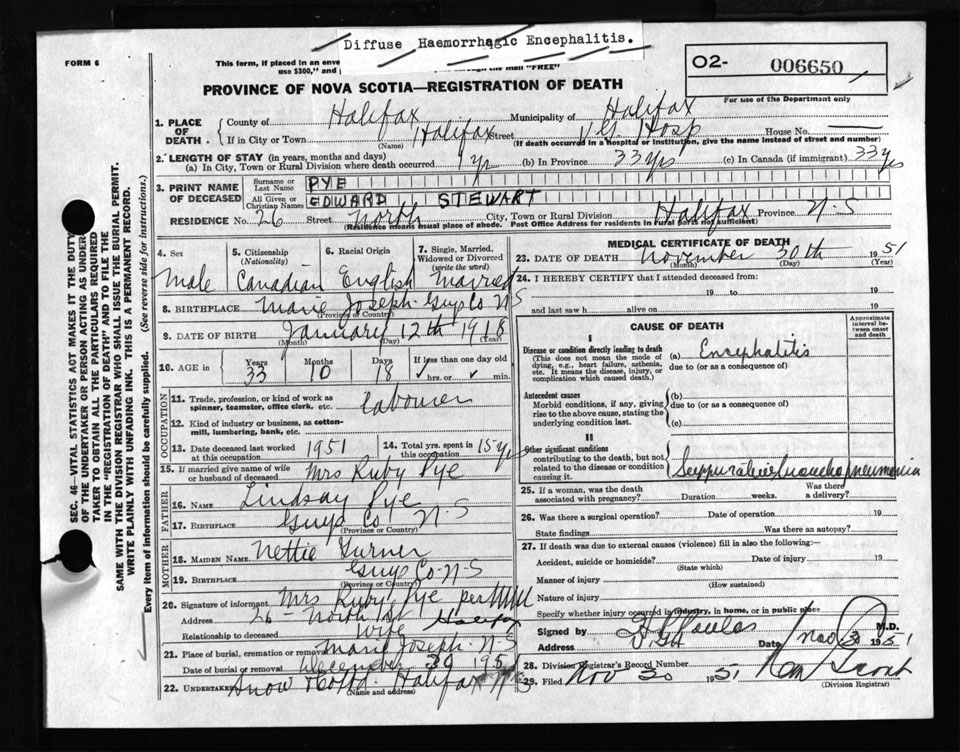 Diffuse Haemorrhagic Encephalitis.
FORM 6
This form, if placed in an enve
use $300," and
through the mail "FREE"
O2- 006650
For use of the Department only
PROVINCE OF NOVA SCOTIA—REGISTRATION OF DEATH
1. PLACE OF DEATH. County of Halifax Municipality of Halifax
If in City or Town Halifax Street V.G. Hosp House No. —
(Name) (If death occurred in a Hospital or Institution, give the name instead of street and number)
2. LENGTH OF STAY (in years, months and days)
(a) In City, Town or Rural Division where death occurred 1 yr (b) In Province 33 yrs (c) In Canada (if immigrant) 33 yrs
3. PRINT NAME OF DECEASED Surname or Last Name PYE
All Given or Christian Names EDWARD STEWART
RESIDENCE No. 26 Street North City, Town or Rural Division Halifax Province N-S
(Residence means usual place of abode. Post Office Address for residents in rural parts not sufficient)
4. Sex 5. Citizenship (Nationality) 6. Racial Origin 7. Single, Married, Widowed or Divorced (write the word)
Male Canadian English Married
8. BIRTHPLACE Marie Joseph Guys Co N-S
(Province or Country)
9. DATE OF BIRTH January 12th 1918
(Month) (Day) (Year)
10. AGE in Years 33 Months 10 Days 18 If less than one day old hrs. or min.
OCCUPATION
11. Trade, profession, or kind of work as spinner, teamster, office clerk, etc. Labourer
12. Kind of industry or business, as cotton-mill, lumbering, bank, etc.
13. Date deceased last worked at this occupation 1951 14. Total yrs. spent in this occupation 15 yrs
15. If married give name of wife or husband of deceased Mrs Ruby Pye
FATHER
16. NAME Lindsay Pye
17. BIRTHPLACE Guys Co N-S
(Province or Country)
MOTHER
18. MAIDEN NAME Nettie Turner
19. BIRTHPLACE Guys Co-N-S
(Province or Country)
20. Signature of informant Mrs Ruby Pye per
Address 26 North St Halifax
Relationship to deceased Wife
21. Place of burial, cremation or removal Marie Joseph N-S
Date of burial or removal December 195
22. Undertaker Snow Halifax N-S
(Name and address)
MEDICAL CERTIFICATE OF DEATH
23. DATE OF DEATH November 30th 1951
(Month) (Day) (Year)
24. I HEREBY CERTIFY that I attended deceased from:
19 to 19
and last saw h alive on 19
CAUSE OF DEATH
Approximate interval between onset and death
I
Disease or condition directly leading to death (a) Encephalitis
(This does not mean the mode of dying, e.g., heart failure, asthenia, etc. It means the disease, injury, or complication which caused death.)
due to (or as a consequence of)
Antecedent causes (b)
Morbid conditions, if any, giving rise to the above cause, stating the underlying condition last.
due to (or as a consequence of)
(c)
II
Other significant conditions
contributing to the death, but not related to the disease or condition causing it.
Suppurative bronchopneumonia
25. If a woman, was the death associated with pregnancy? Duration weeks. Was there a delivery?
26. Was there a surgical operation? Date of operation 19
State findings Was there an autopsy?
27. If death was due to external causes (violence) fill in also the following:—
Accident, suicide or homicide? Date of injury 19
(State which)
Manner of injury
(How sustained)
Nature of injury
Specify whether injury occurred in industry, in home, or in public place
Signed by M.D.
Address V.G.H Date Nov 1951
28. Division Registrar's Record Number
29. Filed Nov 30 1951
(Division Registrar)
SEC. 46—VITAL STATISTICS ACT MAKES IT THE DUTY
OF THE UNDERTAKER OR PERSON ACTING AS UNDER-
TAKER TO OBTAIN ALL THE PARTICULARS REQUIRED
IN THE "REGISTRATION OF DEATH" AND TO FILE THE
SAME WITH THE DIVISION REGISTRAR WHO SHALL ISSUE THE BURIAL PERMIT.
WRITE PLAINLY WITH UNFADING INK. THIS IS A PERMANENT RECORD.
Every item of information should be carefully supplied. (See reverse side for instructions.)